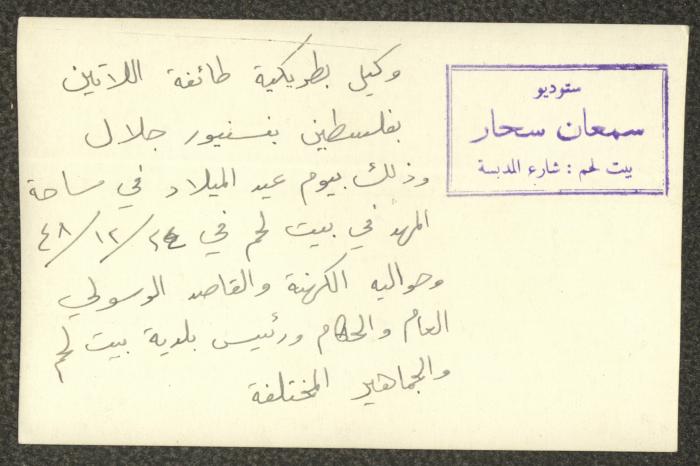 ستوديو
سمعان سحار
بيت لحم : شارع المدبسة
وكيل بطريكية طائفة اللاتين
بفلسطين بنسنيور جلال
وذلك بيوم عيد الميلاد في ساحة
المهد في بيت لحم في ٢٤/١٢/٤٨
وحواليه الكهنة والقاصد الرسولي
العام والحكام ورئيس بلدية بيت لحم
والجماهير المختلفة